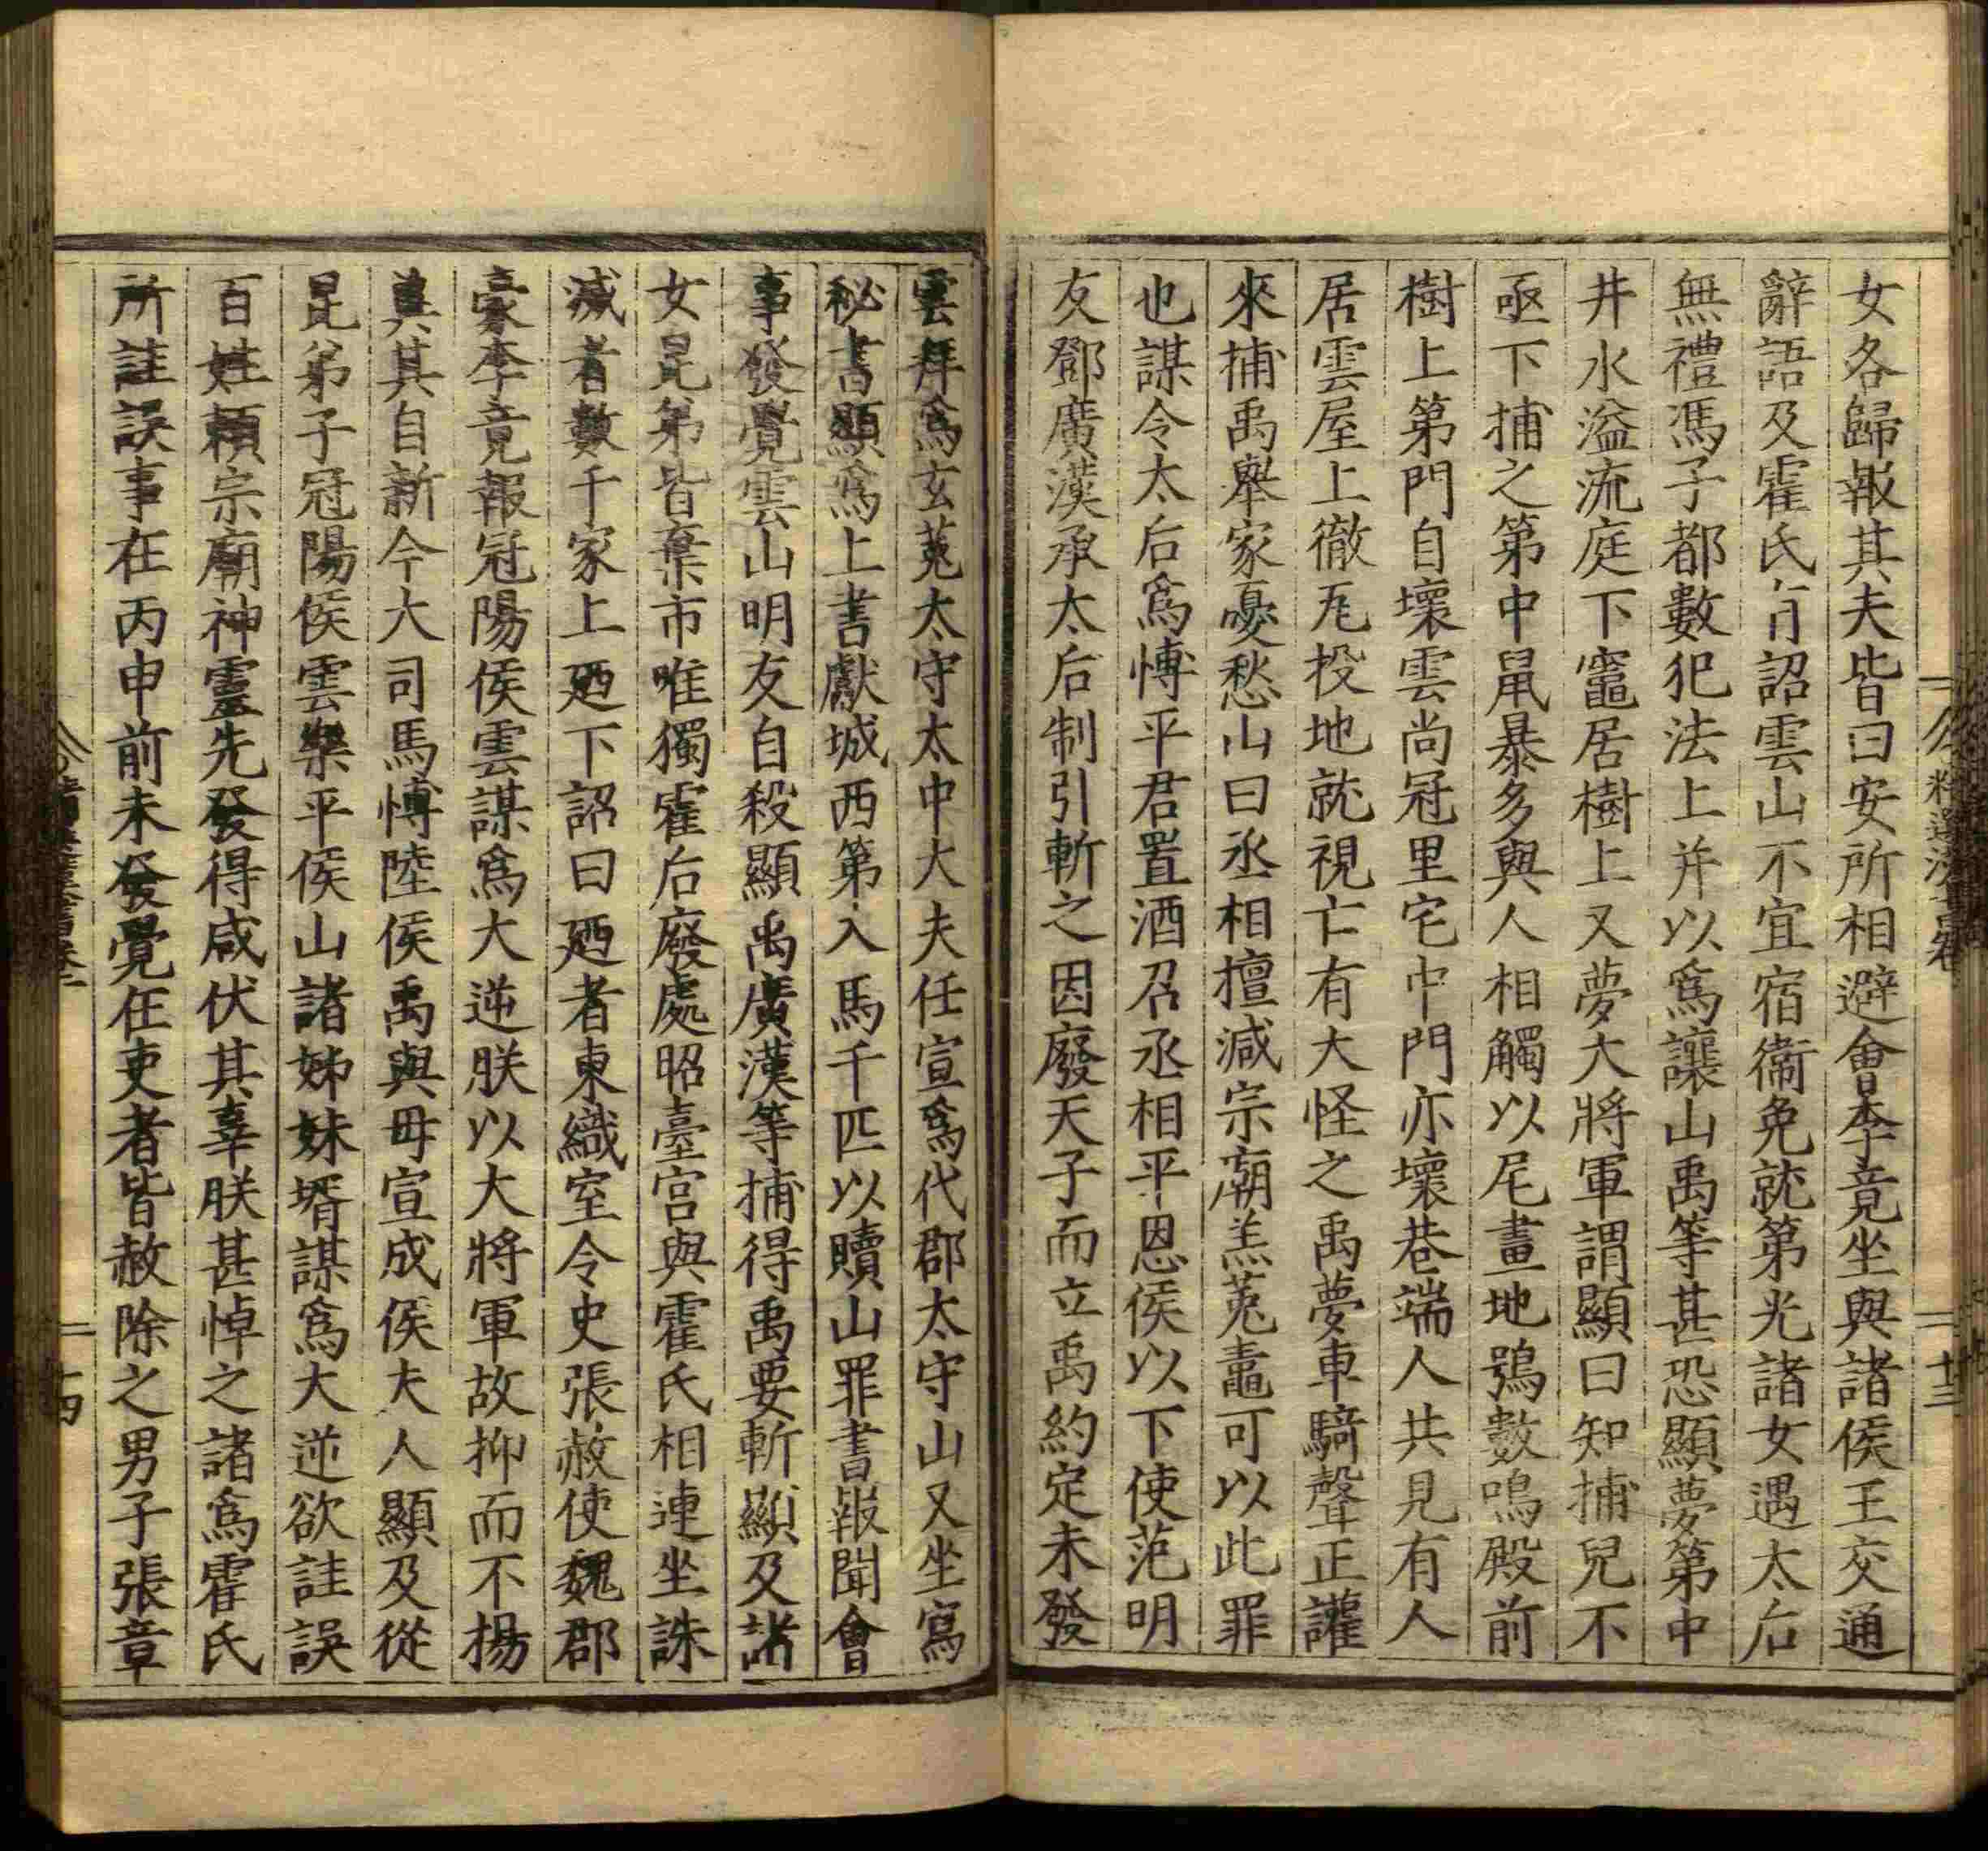 女各歸報其夫皆曰安所相避會李竟坐與諸侯王交通
辭語及霍氏有詔雲山不宜宿衛免就第光諸女遇太后
無禮馮子都數犯法上并以爲讓山禹等甚恐顯夢第中
井水溢流庭下竈居樹上又夢大將軍謂顯曰知捕兒不
亟下捕之第中鼠暴多與人相觸以尾畫地鴞數鳴殿前
樹上第門自壞雲尚冠里宅中門亦壞巷端人共見有人
居雲屋上徹瓦投地就視亡有大怪之禹夢車騎聲正讙
來捕禹舉家憂愁山曰丞相擅減宗廟羔菟鼃可以此罪
也謀令太后爲愽平君置酒召丞相平恩侯以下使范明
友鄧廣漢承太后制引斬之因廢天子而立禹約定未發
雲拜爲玄菟太守太中大夫任宣爲代郡太守山又坐寫
秘書顯爲上書獻城西第入馬千匹以贖山罪書報聞會
事發覺雲山明友自殺顯禹廣漢等捕得禹要斬顯及諸
女昆弟皆棄市唯獨霍后廢處昭臺宮與霍氏相連坐誅
滅者數千家上廼下詔曰廼者東織室令史張赦使魏郡
豪李竟報冠陽侯雲謀爲大逆朕以大將軍故抑而不揚
兾其自新今大司馬愽陸侯禹與母宣成侯夫人顯及從
昆弟子冠陽侯雲樂平侯山諸姊妹壻謀爲大逆欲詿誤
百姓賴宗廟神靈先發得咸伏其辜朕甚悼之諸爲霍氏
所詿誤事在丙申前未發覺在吏者皆赦除之男子張章
精選漢書卷
十三